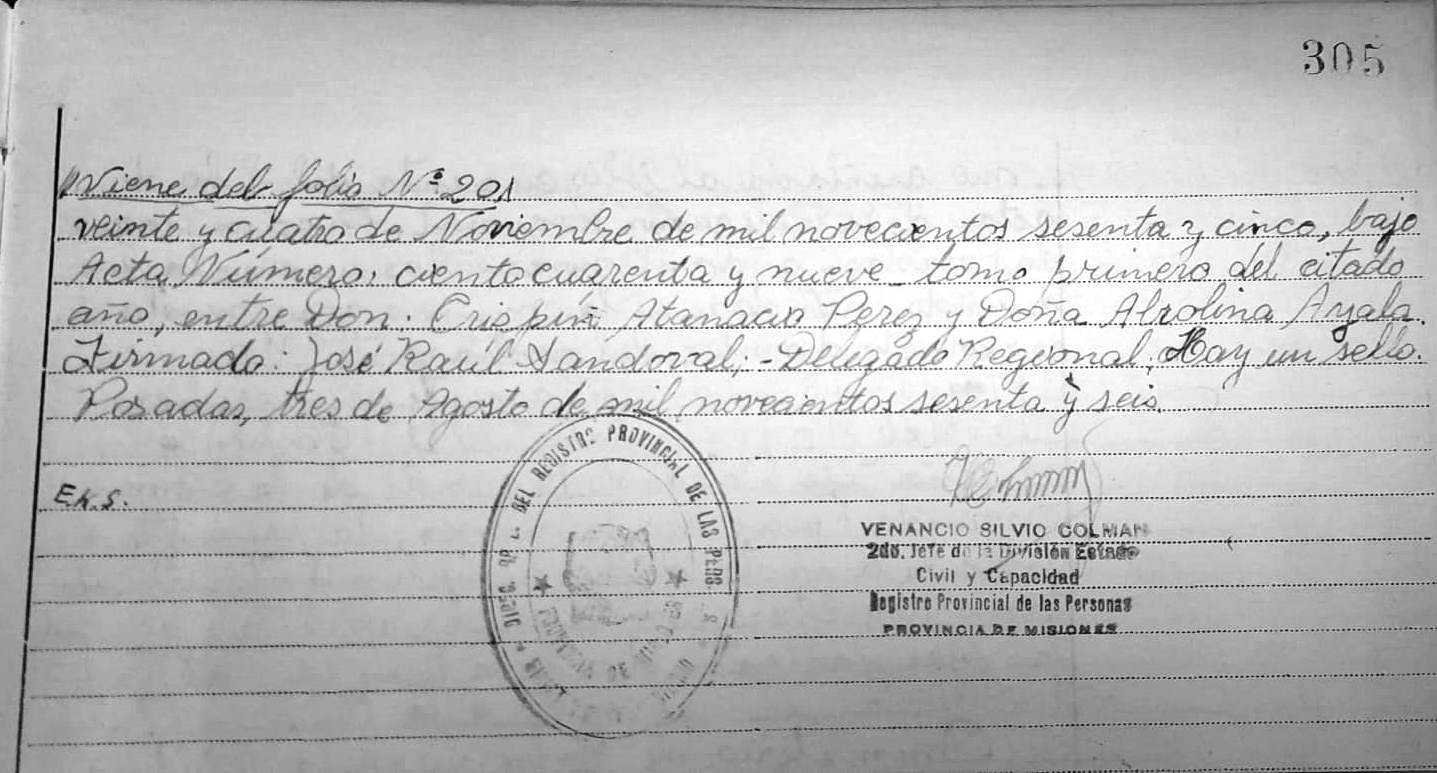 305
"Viene del folio Nº 201
veinte y cuatro de Noviembre de mil novecientos sesenta y cinco, bajo
Acta Número: ciento cuarenta y nueve tomo primero del citado
año, entre Don: Crispin Atanacio Perez y Doña Alrolina Ayala.
Firmado: José Raúl Sandoval; - Delegado Regional. Hay un sello.
Posadas, tres de Agosto de mil novecientos sesenta y seis.
E.K.S.
DEL REGISTRO PROVINCIAL DE LAS PERS.
VENANCIO SILVIO COLMAN
2do. Jefe de la División Estado
Civil y Capacidad
Registro Provincial de las Personas
PROVINCIA DE MISIONES